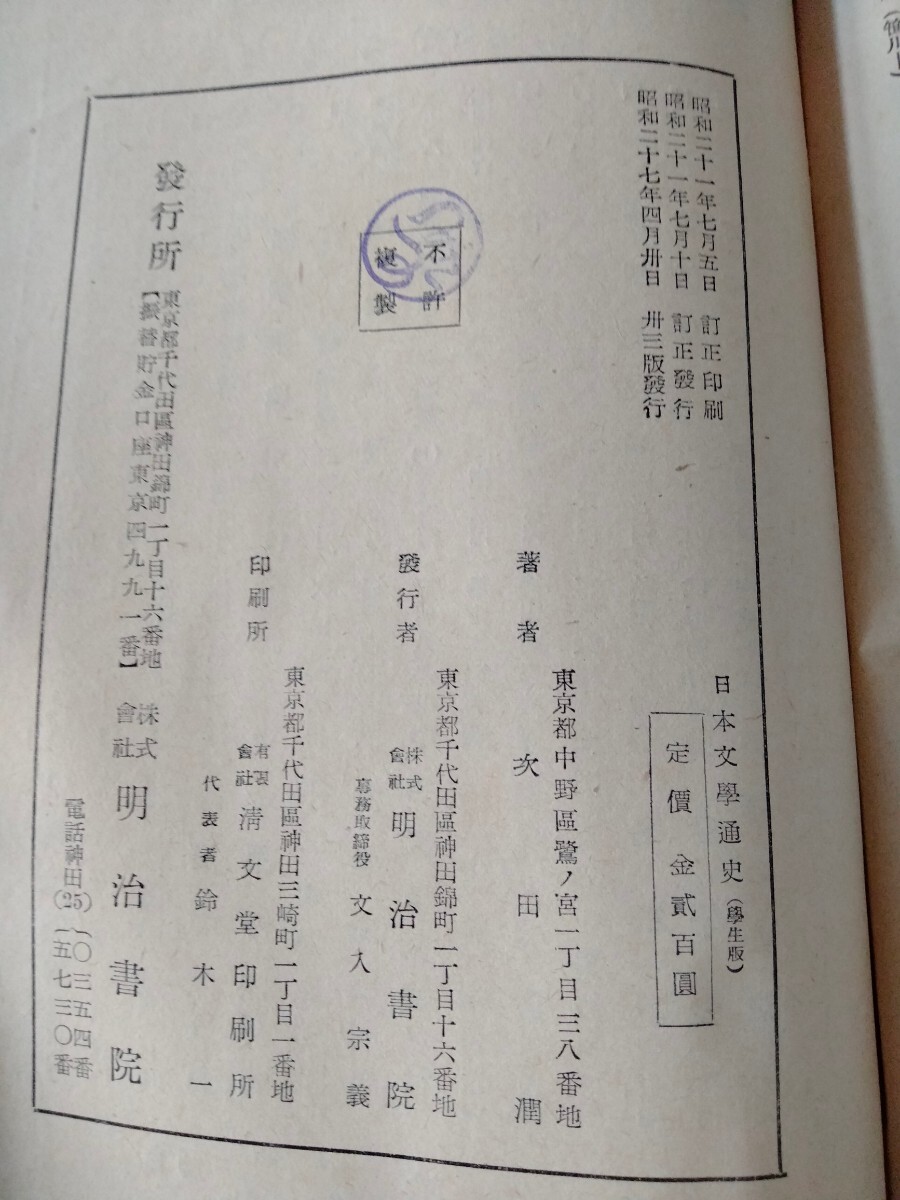 昭和二十一年七月五日 訂正印刷
昭和二十一年七月十日 訂正發行
昭和二十七年四月卅日 卅三版發行
日本文學通史(學生版)
定價 金貳百圓
不許
複製
著者
東京都中野區鷺ノ宮一丁目三八番地
次田潤
發行者
東京都千代田區神田錦町一丁目十六番地
株式會社 明治書院
專務取締役 文入宗義
印刷所
東京都千代田區神田三崎町二丁目一番地
有限會社 淸文堂印刷所
代表者 鈴木一
發行所
東京都千代田區神田錦町一丁目十六番地
【振替貯金口座東京四九九一番】
株式會社 明治書院
電話神田(25){〇三五四番
一五七三〇番